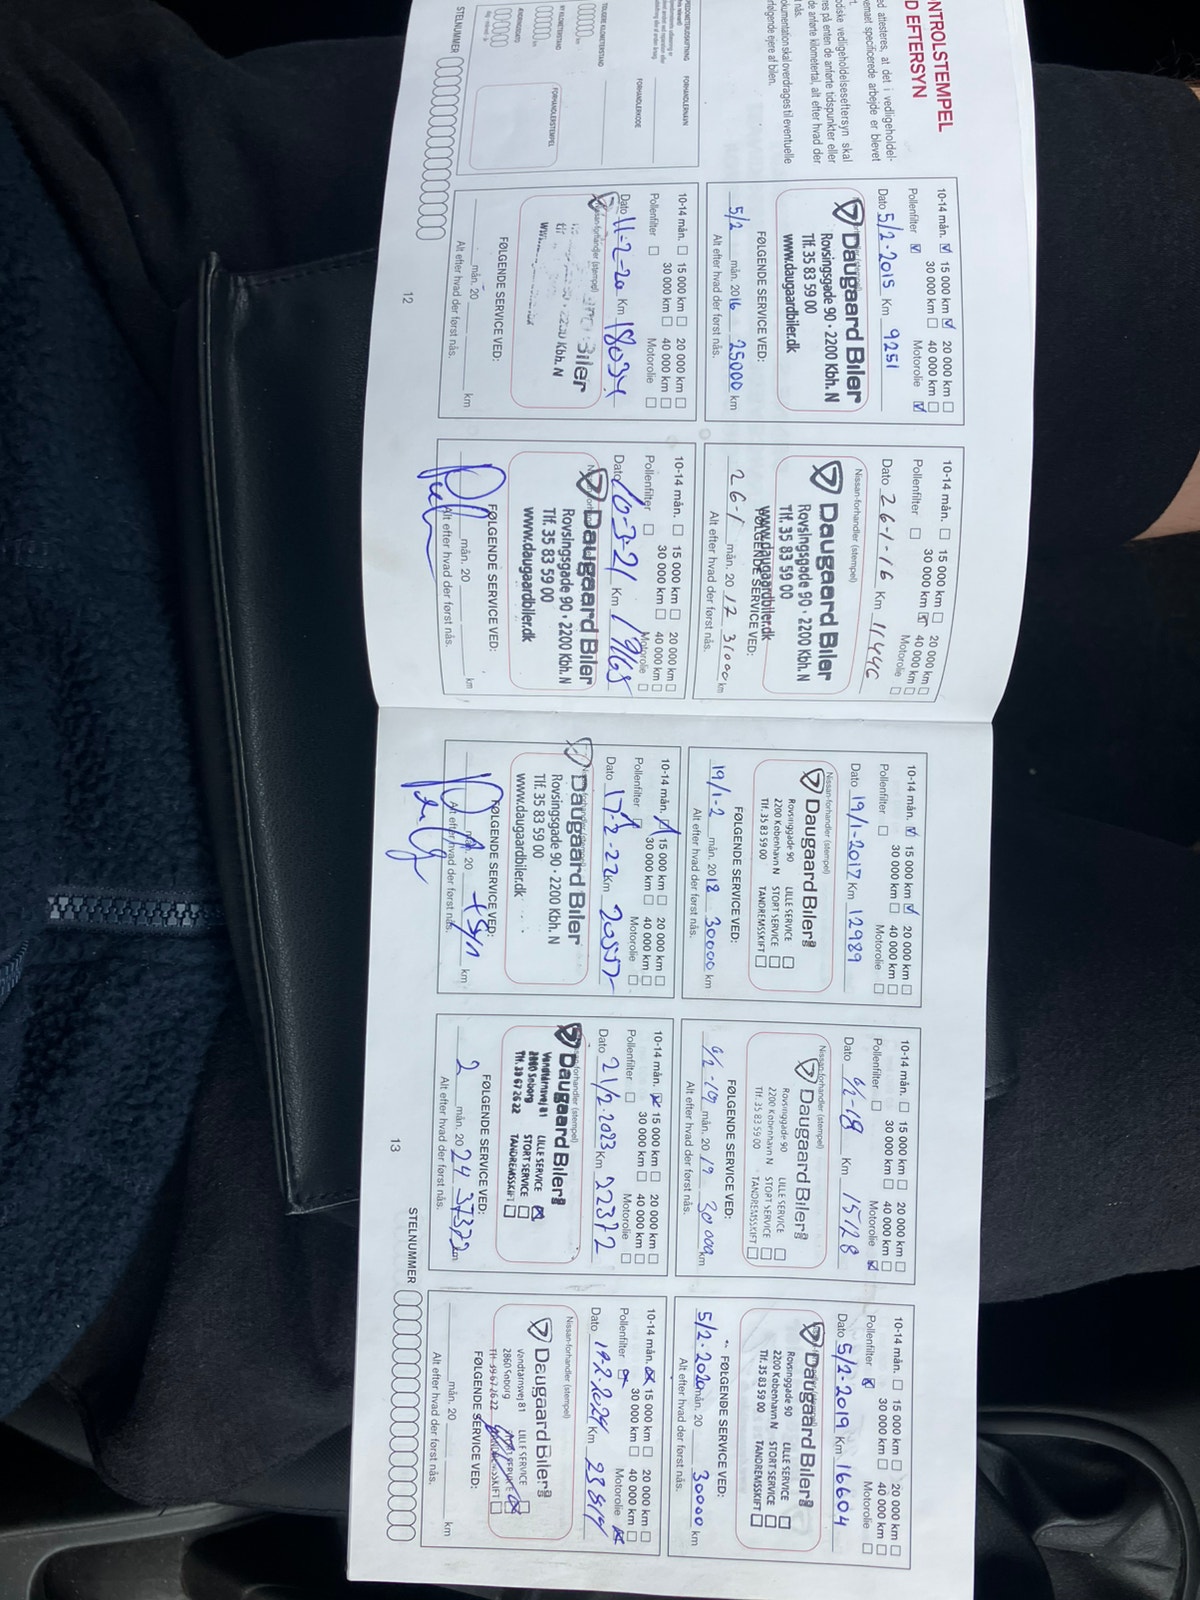 NTROLSTEMPEL
D EFTERSYN
ed attesteres, at det i vedligeholdel-
emaet specificerede arbejde er blevet
rt.
odiske vedligeholdelseseftersyn skal
res på enten de anførte tidspunkter eller
de anførte kilometertal, alt efter hvad der
t nås.
okumentation skal overdrages til eventuelle
rfølgende ejere af bilen.
FORHANDLERNAVN
FORHANDLERKODE
TIDLIGERE KILOMETERSTAND
NY KILOMETERSTAND
FORHANDLERSTEMPEL
STELNUMMER
10-14 mån. 15 000 km 20 000 km
30 000 km 40 000 km
Pollenfilter Motorolie
Dato 5/2-2015 Km 9251
Daugaard Biler
Rovsingsgade 90 · 2200 Kbh. N
Tlf. 35 83 59 00
www.daugaardbiler.dk
FØLGENDE SERVICE VED:
5/2 mån. 2016 25000 km
Alt efter hvad der først nås.
10-14 mån. 15 000 km 20 000 km
30 000 km 40 000 km
Pollenfilter Motorolie
Dato 26-1-16 Km 11446
Nissan-forhandler (stempel)
Daugaard Biler
Rovsingsgade 90 · 2200 Kbh. N
Tlf. 35 83 59 00
www.daugaardbiler.dk
FØLGENDE SERVICE VED:
26-1 mån. 20 17 31000 km
Alt efter hvad der først nås.
10-14 mån. 15 000 km 20 000 km
30 000 km 40 000 km
Pollenfilter Motorolie
Dato 11-2-20 Km 18034
Nissan-forhandler (stempel)
Biler
2200 Kbh. N
FØLGENDE SERVICE VED:
mån. 20 km
Alt efter hvad der først nås.
10-14 mån. 15 000 km 20 000 km
30 000 km 40 000 km
Pollenfilter Motorolie
Dato 10-3-21 Km 19165
Daugaard Biler
Rovsingsgade 90 · 2200 Kbh. N
Tlf. 35 83 59 00
www.daugaardbiler.dk
FØLGENDE SERVICE VED:
mån. 20 km
Alt efter hvad der først nås.
12
10-14 mån. 15 000 km 20 000 km
30 000 km 40 000 km
Pollenfilter Motorolie
Dato 19/1-2017 Km 12989
Nissan-forhandler (stempel)
Daugaard Biler
Rovsinggade 90 LILLE SERVICE
2200 København N STORT SERVICE
Tlf. 35 83 59 00 TANDREMSSKIFT
FØLGENDE SERVICE VED:
19/1-2 mån. 2018 30000 km
Alt efter hvad der først nås.
10-14 mån. 15 000 km 20 000 km
30 000 km 40 000 km
Pollenfilter Motorolie
Dato 6/2-18 Km 15128
Nissan-forhandler (stempel)
Daugaard Biler
Rovsinggade 90 LILLE SERVICE
2200 København N STORT SERVICE
Tlf. 35 83 59 00 TANDREMSSKIFT
FØLGENDE SERVICE VED:
6/2-19 mån. 20 19 30 000 km
Alt efter hvad der først nås.
10-14 mån. 15 000 km 20 000 km
30 000 km 40 000 km
Pollenfilter Motorolie
Dato 5/2-2019 Km 16604
Daugaard Biler
Rovsinggade 90 LILLE SERVICE
2200 København N STORT SERVICE
Tlf. 35 83 59 00 TANDREMSSKIFT
FØLGENDE SERVICE VED:
5/2-2020 mån. 20 30000 km
Alt efter hvad der først nås.
10-14 mån. 15 000 km 20 000 km
30 000 km 40 000 km
Pollenfilter Motorolie
Dato 17-2-22 Km 20557
Daugaard Biler
Rovsingsgade 90 · 2200 Kbh. N
Tlf. 35 83 59 00
www.daugaardbiler.dk
FØLGENDE SERVICE VED:
mån. 20 + syn km
Alt efter hvad der først nås.
10-14 mån. 15 000 km 20 000 km
30 000 km 40 000 km
Pollenfilter Motorolie
Dato 21/2-2023 Km 22372
Daugaard Biler
Vandtårnsvej 81 LILLE SERVICE
2860 Søborg STORT SERVICE
Tlf. 39 67 26 22 TANDREMSSKIFT
FØLGENDE SERVICE VED:
2 mån. 20 24 37372 km
Alt efter hvad der først nås.
10-14 mån. 15 000 km 20 000 km
30 000 km 40 000 km
Pollenfilter Motorolie
Dato 19-2-2024 Km 23814
Nissan-forhandler (stempel)
Daugaard Biler
Vandtårnsvej 81 LILLE SERVICE
2860 Søborg STORT SERVICE
Tlf. 39 67 26 22 TANDREMSSKIFT
FØLGENDE SERVICE VED:
mån. 20 km
Alt efter hvad der først nås.
13
STELNUMMER